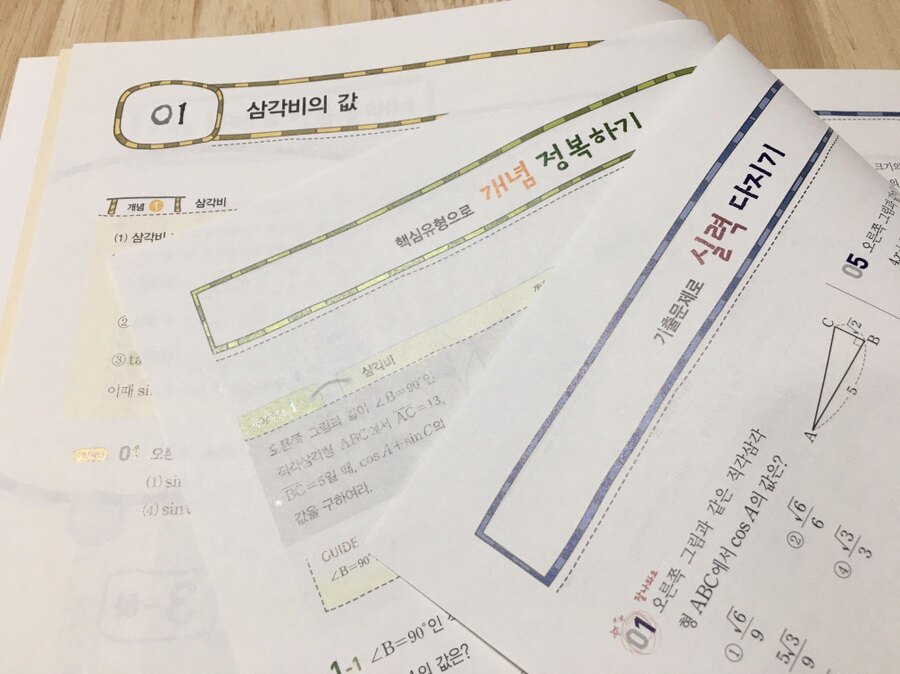 01 삼각비의 값
개념 1 삼각비
(1) 삼각비
②
③ ta
이때 si
01 오른
(1) sin
(4) sin
핵심유형으로 개념 정복하기
삼각비
오른쪽 그림과 같이 ∠B=90°인
직각삼각형 ABC에서 AC=13,
BC=5일 때, cos A+sin C의
값을 구하여라.
GUIDE
∠B=90°
1-1 ∠B=90°인
의 값은?
기출문제로 실력 다지기
잘 나와요
01 오른쪽 그림과 같은 직각삼각
형 ABC에서 cos A의 값은?
① √6/9
② √6/6
5√3/9
④ √3/3
C
√2
B
5
A
크기의
05 오른쪽 그림과